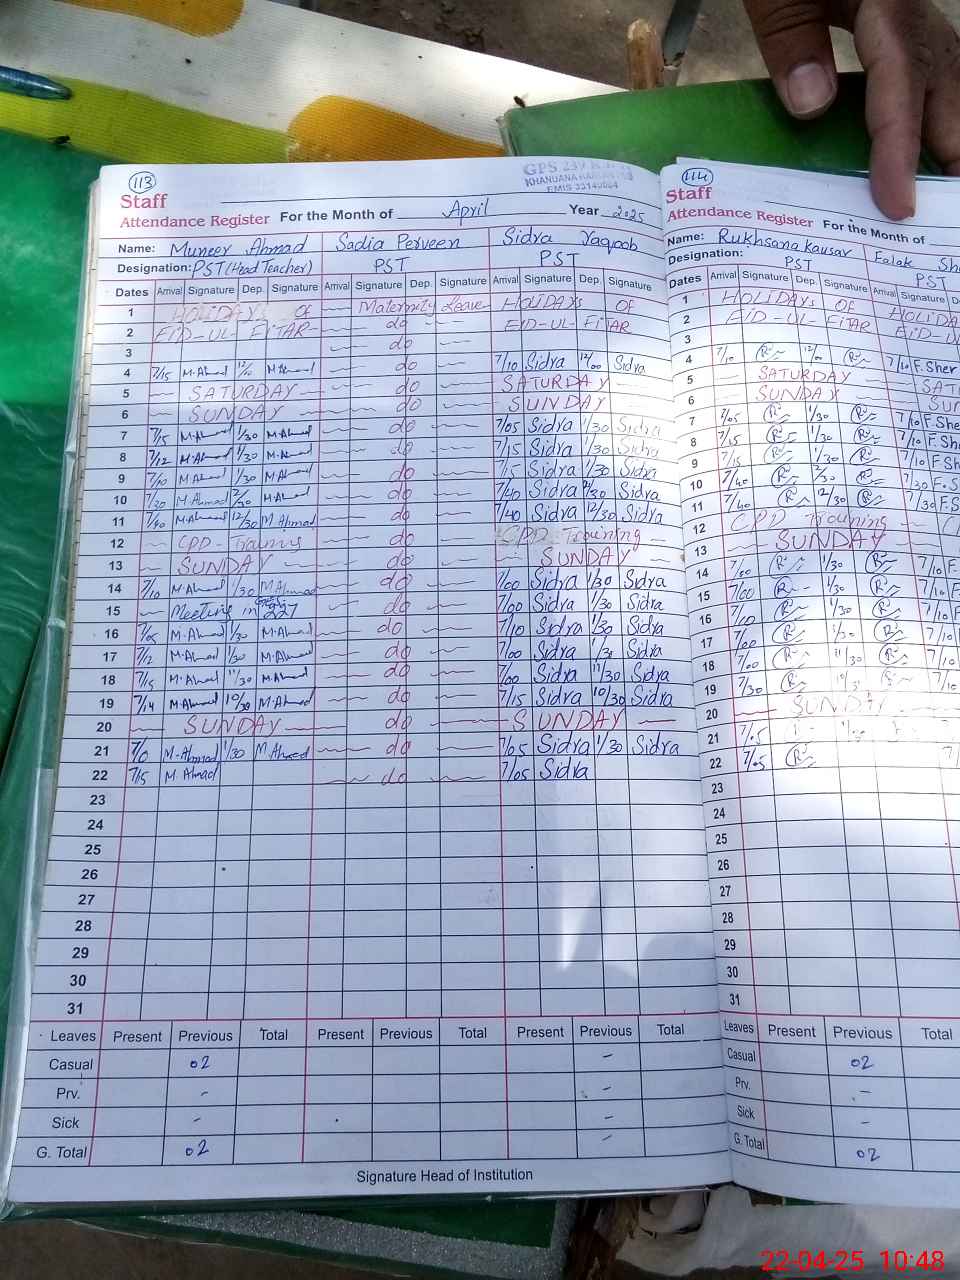 113
GPS 239
KHANUANA
EMIS 33140004
Staff
Attendance Register For the Month of April Year 2025
Name: Muneer Ahmad Sadia Perveen Sidra Yaqoob
Designation: PST (Head Teacher) PST PST
Dates Arrival Signature Dep. Signature Arrival Signature Dep. Signature Arrival Signature Dep. Signature
1 HOLIDAYS OF Maternity Leave HOLIDAYS OF
2 EID-UL-FITAR do EID-UL-FITAR
3 do
4 7/15 M.Ahmad 12/00 M.Ahmad do 7/10 Sidra 12/00 Sidra
5 SATURDAY do SATURDAY
6 SUNDAY do SUNDAY
7 7/15 M.Ahmad 1/30 M.Ahmad do 7/05 Sidra 1/30 Sidra
8 7/12 M.Ahmad 1/30 M.Ahmad do 7/15 Sidra 1/30 Sidra
9 7/10 M.Ahmad 1/30 M.Ahmad do 7/15 Sidra 1/30 Sidra
10 7/30 M.Ahmad 2/30 M.Ahmad do 7/40 Sidra 2/30 Sidra
11 7/40 M.Ahmad 12/30 M.Ahmad do 7/40 Sidra 12/30 Sidra
12 CPD-Training do CPD Training
13 SUNDAY do SUNDAY
14 7/10 M.Ahmad 1/30 M.Ahmad do 7/00 Sidra 1/30 Sidra
15 Meeting in 227 do 7/00 Sidra 1/30 Sidra
16 7/05 M.Ahmad 1/30 M.Ahmad do 7/10 Sidra 1/30 Sidra
17 7/12 M.Ahmad 1/30 M.Ahmad do 7/00 Sidra 1/30 Sidra
18 7/15 M.Ahmad 11/30 M.Ahmad do 7/00 Sidra 11/30 Sidra
19 7/14 M.Ahmad 10/30 M.Ahmad do 7/15 Sidra 10/30 Sidra
20 SUNDAY do SUNDAY
21 M.Ahmad 1/30 M.Ahmad do 7/05 Sidra 1/30 Sidra
22 7/15 M.Ahmad do 7/05 Sidra
23
24
25
26
27
28
29
30
31
Leaves Present Previous Total Present Previous Total Present Previous Total
Casual 02 -
Prv. - -
Sick - -
G. Total 02 -
Signature Head of Institution
114
Staff
Attendance Register For the Month of
Name: Rukhsana Kausar Falak
Designation: PST PST
Dates Arrival Signature Dep. Signature Arrival Signature
1 HOLIDAYS OF
2 EID-UL FITAR
3
4 7/10 12/00 7/10 F.Sher
5 SATURDAY
6 SUNDAY
7 7/05 1/30 7/10 F.She
8 7/15 1/30 7/10 F.She
9 7/15 1/30 7/10 F.Sh
10 7/40 2/30 7/30 F.S
11 7/40 12/30 7/30 F.S
12 CPD Training
13 SUNDAY
14 7/00 1/30 7/10 F.
15 7/00 1/30 7/10
16 7/10 1/30 7/10
17 7/00 1/30 7/10
18 7/00 11/30 7/10
19 7/30
20 SUNDAY
21 7/05
22 7/05
23
24
25
26
27
28
29
30
31
Leaves Present Previous Total
Casual 02
Prv. -
Sick -
G. Total 02
22-04-25 10:48